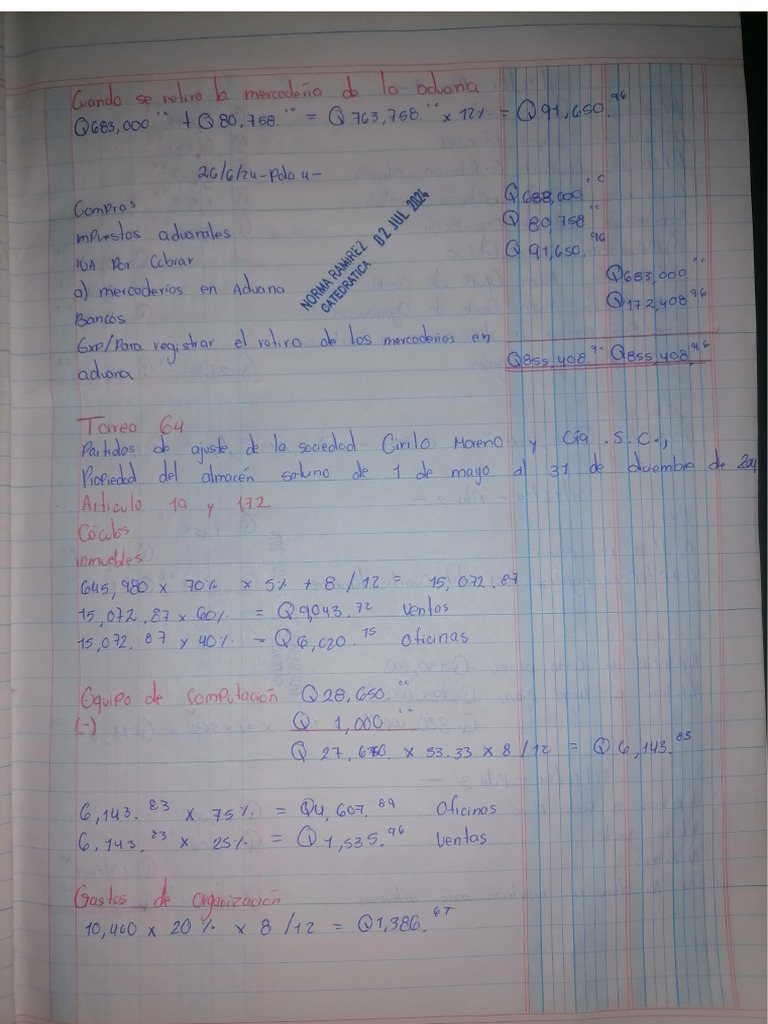 Cuando se retiro la mercaderia de la aduana
Q683,000.°° + Q80,758.°° = Q763,758.°° x 12% = Q91,650.96
26/6/24-Pda 4-
Compras Q688,000.°°
mpuestos aduanales Q80,758.°°
IVA Por Cobrar Q91,650.96
a) mercaderias en Aduana Q683,000.°°
Bancos Q172,408.96
Exp/Para registrar el retiro de las mercaderias en
aduana Q855,408.9 Q855,408.96
NORMA RAMIREZ
CATEDRATICA 02 JUL 2024
Tarea 64
Partidas de ajuste de la sociedad Cirilo Moreno y Cía. S.C.,
Propiedad del almacén de 1 de mayo al 31 de diciembre de
Articulo 19 y 172
inmuebles
645,980 x 70% x 5% + 8/12 = 15,072.87
15,072.87 x 60% = Q9,043.72 ventas
15,072.87 x 40% = Q6,020.15 oficinas
Equipo de computación Q28,650.°°
(-) Q 1,000.°°
Q 27,650. x 33.33 x 8/12 = Q6,143.83
6,143.83 x 75% = Q4,607.89 Oficinas
6,143.83 x 25% = Q1,535.96 Ventas
Gastos de organización
10,400 x 20% x 8/12 = Q1,386.67